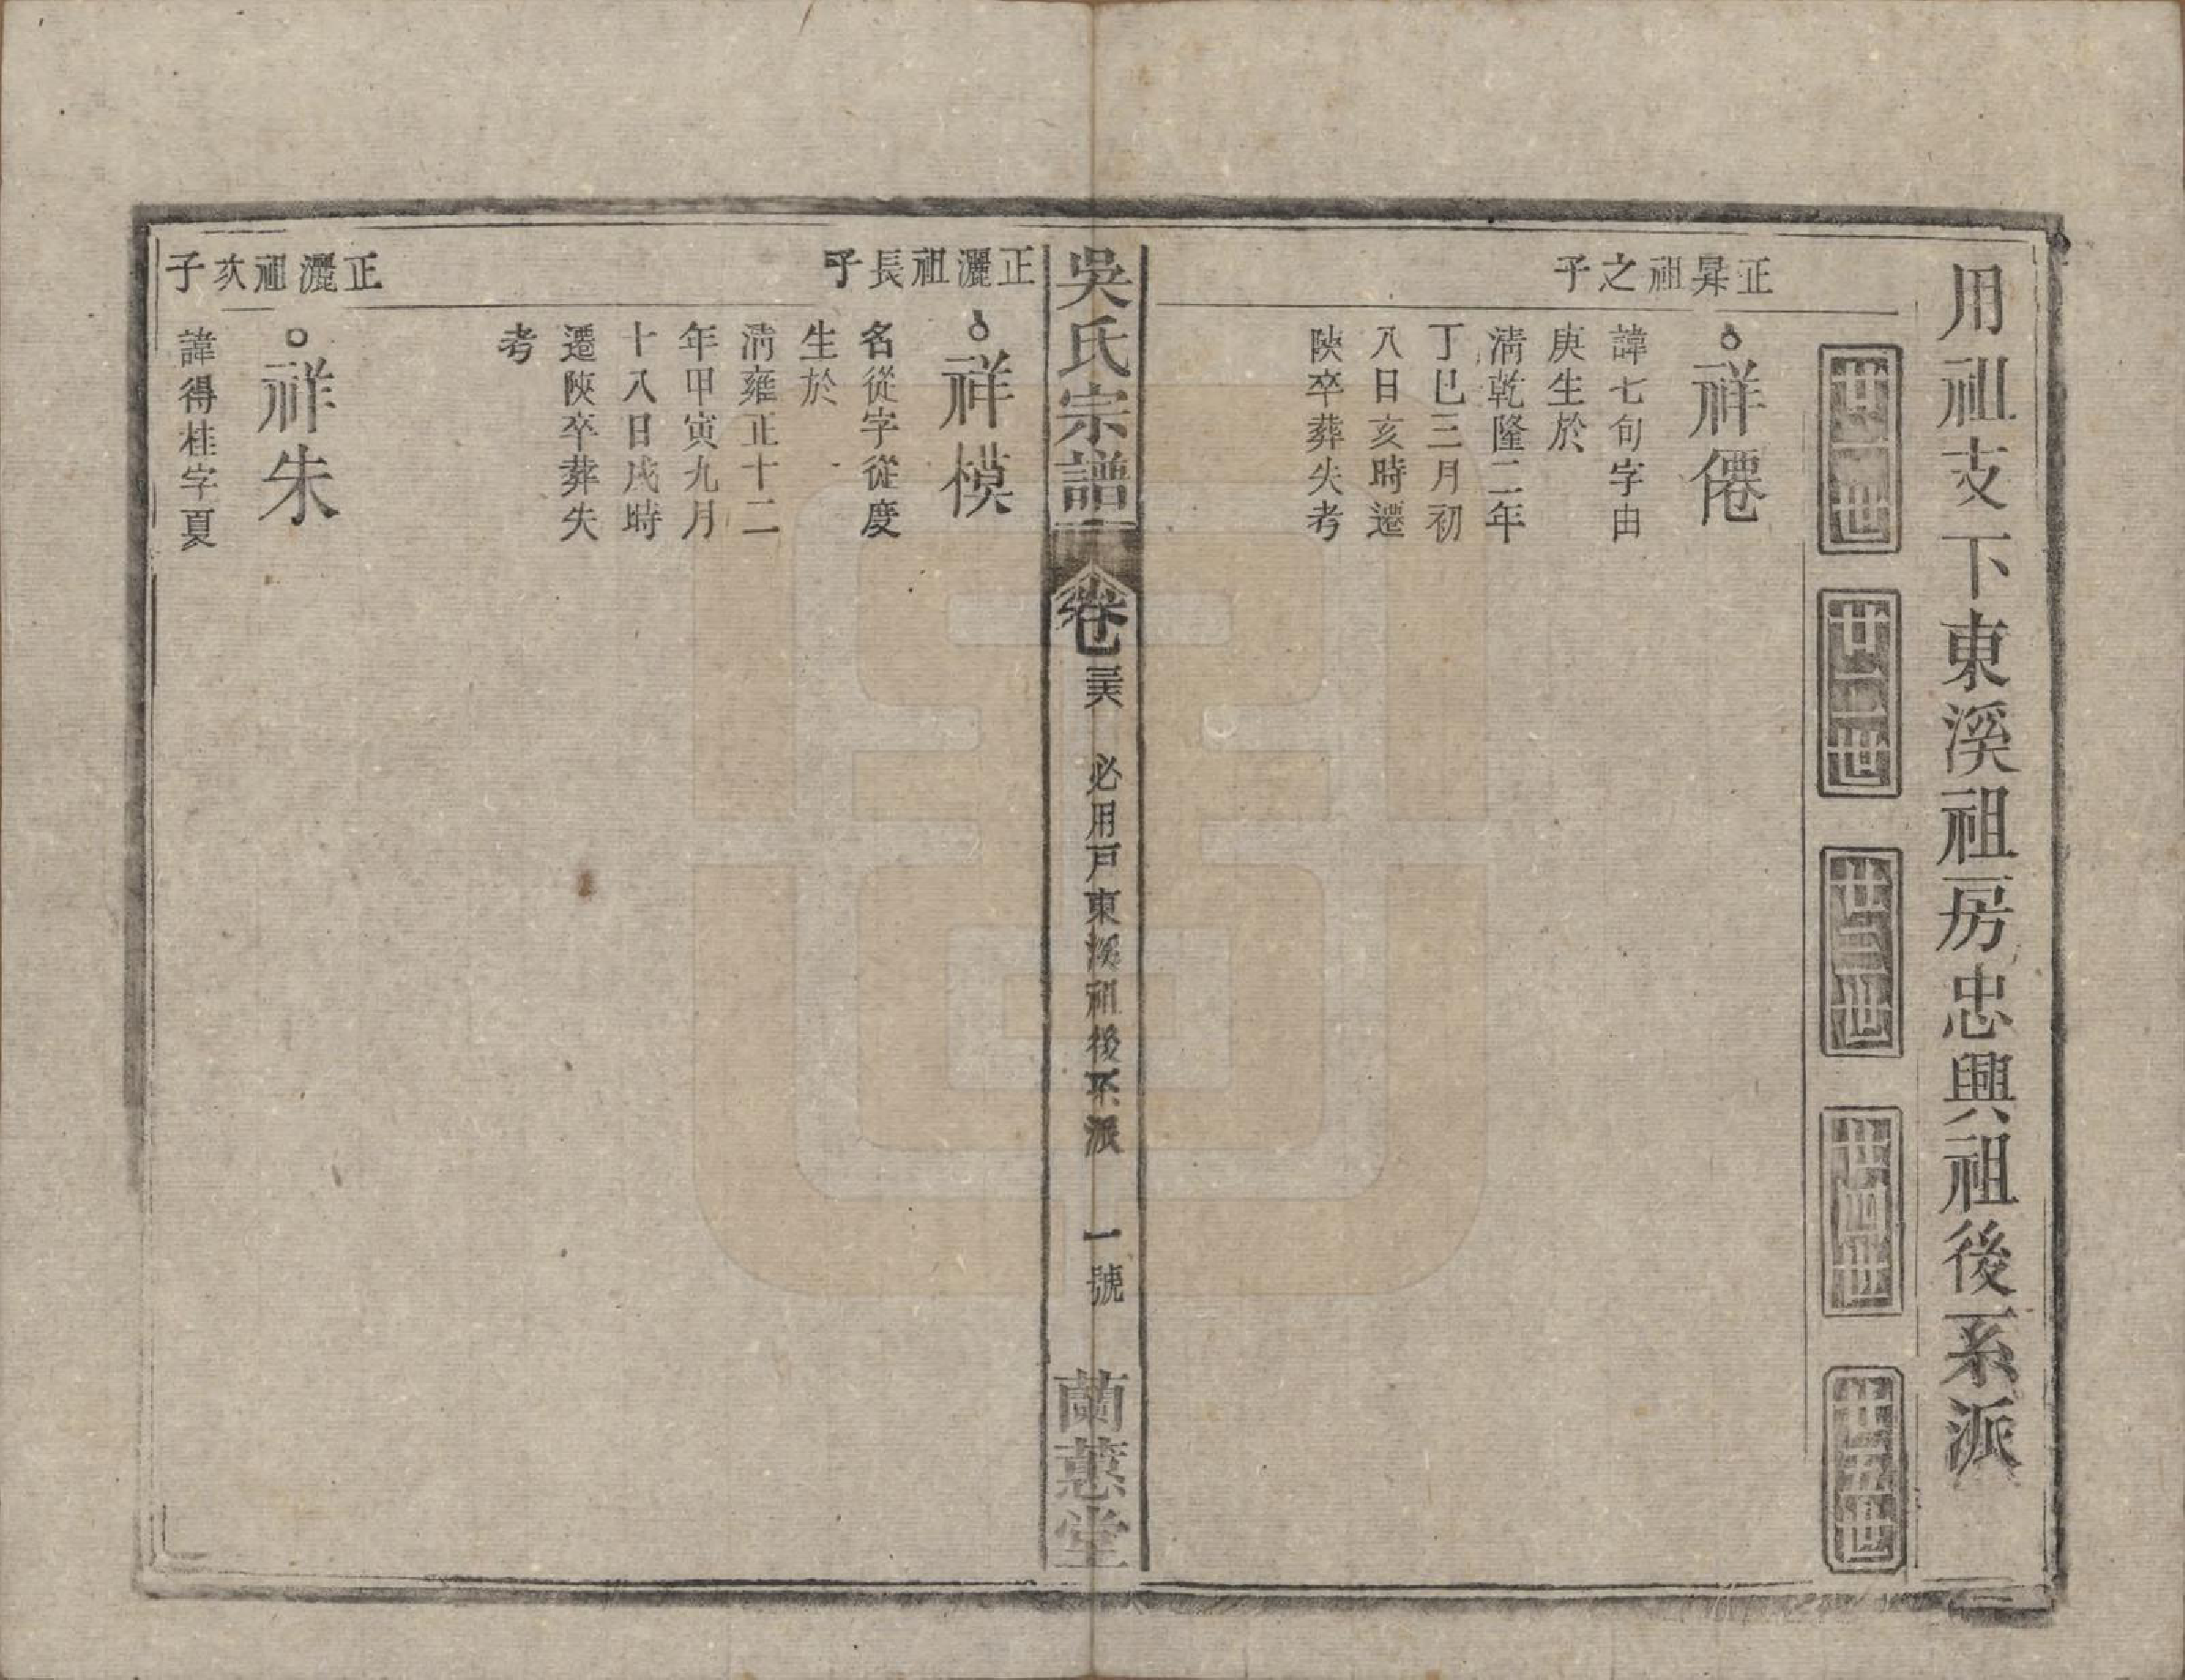 用祖支下東溪祖房忠興祖後系派
廿一世
廿二世
廿三世
廿四世
廿五世
正昇祖之子
祥僊
諱七旬字由
庚生於
淸乾隆二年
丁巳三月初
八日亥時遷
陝卒葬失考
吳氏宗譜
卷
必用戶東溪祖後系派
一號
蘭蕙堂
正灑祖長子
祥模
名從字從度
生於
淸雍正十二
年甲寅九月
十八日戌時
遷陝卒葬失
考
正灑祖次子
祥朱
諱得桂字夏